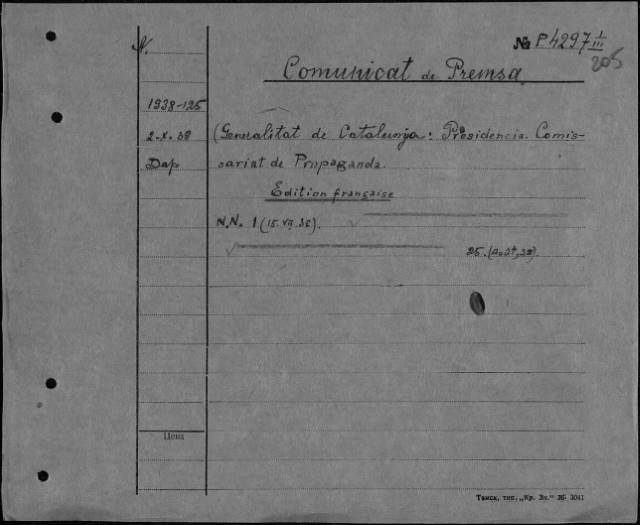 № P.4297 I/III
205
N.
Comunicat de Premsa
1938-125
2-X-38
Dap
(Generalitat de Catalunya: Presidencia. Comis-
sariat de Propaganda.
Edition française
N.N. 1 (15.VII.36).
25. (Août, 38)
Цена
Томск, тип. „Кр. Зн." 36- 3041